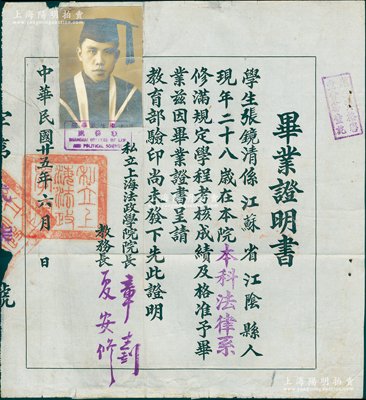 畢業證明書
學生張鏡清係江蘇省江陰縣人
現年二十八歲在本院本科法律系
修滿規定學程考核成績及格准予畢
業茲因畢業證書呈請
教育部驗印尚未發下先此證明
私立上海法政學院院長章士釗
教務長夏安修
中華民國廿五年六月 日
字第 號
SHANGHAI COLLEGE OF LAW
AND POLITICAL SCIENCE
上海陽明拍賣